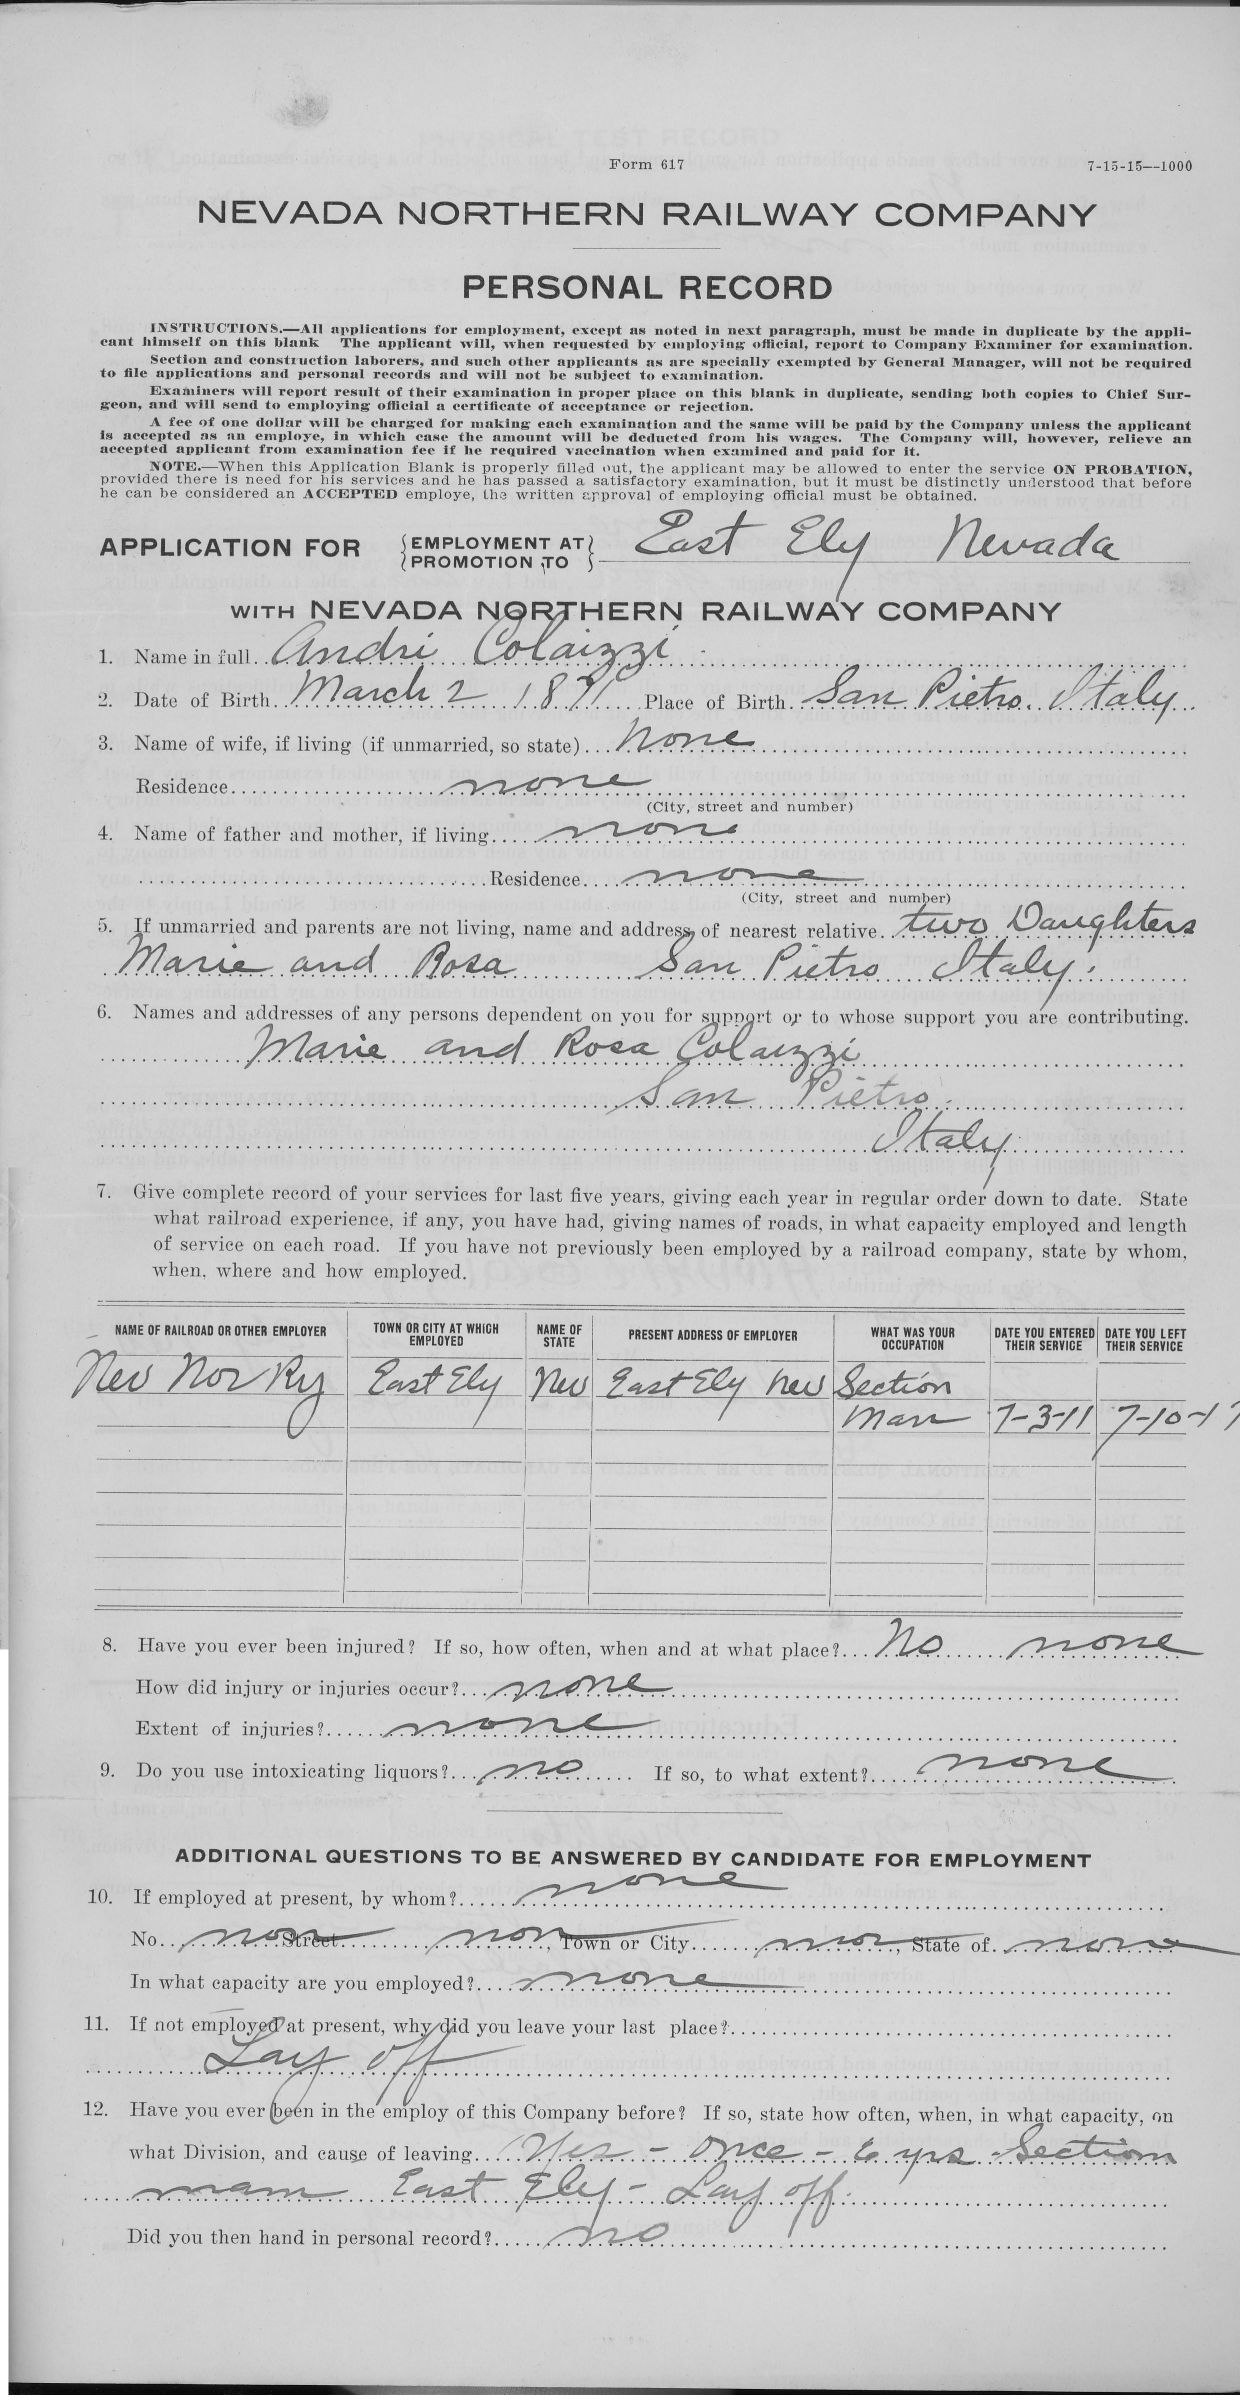 Form 617
7-15-15—1000
NEVADA NORTHERN RAILWAY COMPANY
PERSONAL RECORD
INSTRUCTIONS.—All applications for employment, except as noted in next paragraph, must be made in duplicate by the appli-
cant himself on this blank The applicant will, when requested by employing official, report to Company Examiner for examination.
Section and construction laborers, and such other applicants as are specially exempted by General Manager, will not be required
to file applications and personal records and will not be subject to examination.
Examiners will report result of their examination in proper place on this blank in duplicate, sending both copies to Chief Sur-
geon, and will send to employing official a certificate of acceptance or rejection.
A fee of one dollar will be charged for making each examination and the same will be paid by the Company unless the applicant
is accepted as an employe, in which case the amount will be deducted from his wages. The Company will, however, relieve an
accepted applicant from examination fee if he required vaccination when examined and paid for it.
NOTE.—When this Application Blank is properly filled out, the applicant may be allowed to enter the service ON PROBATION,
provided there is need for his services and he has passed a satisfactory examination, but it must be distinctly understood that before
he can be considered an ACCEPTED employe, the written approval of employing official must be obtained.
APPLICATION FOR {EMPLOYMENT AT} East Ely Nevada
{PROMOTION TO}
WITH NEVADA NORTHERN RAILWAY COMPANY
1. Name in full Andri Colaizzi
2. Date of Birth March 2 1871 Place of Birth San Pietro. Italy
3. Name of wife, if living (if unmarried, so state) None
Residence none
(City, street and number)
4. Name of father and mother, if living none
Residence none
(City, street and number)
5. If unmarried and parents are not living, name and address of nearest relative. two Daughters
Marie and Rosa San Pietro Italy.
6. Names and addresses of any persons dependent on you for support or to whose support you are contributing.
Marie and Rosa Colaizzi
San Pietro
Italy
7. Give complete record of your services for last five years, giving each year in regular order down to date. State
what railroad experience, if any, you have had, giving names of roads, in what capacity employed and length
of service on each road. If you have not previously been employed by a railroad company, state by whom,
when, where and how employed.
NAME OF RAILROAD OR OTHER EMPLOYER TOWN OR CITY AT WHICH EMPLOYED NAME OF STATE PRESENT ADDRESS OF EMPLOYER WHAT WAS YOUR OCCUPATION DATE YOU ENTERED THEIR SERVICE DATE YOU LEFT THEIR SERVICE
Nev Nor Ry East Ely Nev East Ely Nev Section
Man 7-3-11 7-10-17
8. Have you ever been injured? If so, how often, when and at what place? No none
How did injury or injuries occur? none
Extent of injuries? none
9. Do you use intoxicating liquors? no If so, to what extent? none
ADDITIONAL QUESTIONS TO BE ANSWERED BY CANDIDATE FOR EMPLOYMENT
10. If employed at present, by whom? none
No. non Street non, Town or City non, State of. none
In what capacity are you employed? none
11. If not employed at present, why did you leave your last place?
Lay off
12. Have you ever been in the employ of this Company before? If so, state how often, when, in what capacity, on
what Division, and cause of leaving. Yes - once - 6 yrs Section
mam East Ely - Lay off.
Did you then hand in personal record? no